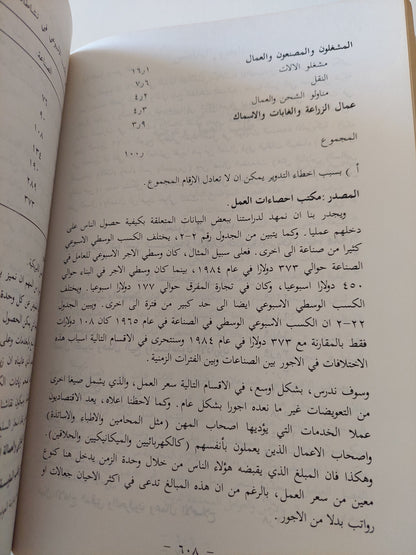 المشغلون والمصنعون والعمال
مشغلو الالات ١٦٫١
النقل ٦٫٧
مناولو الشحن والعمال ٤٫٢
عمال الزراعة والغابات والاسماك ٣٫٤
٩٫٣
المجموع ١٠٠٫
أ ) بسبب اخطاء التدوير يمكن ان لا تعادل الارقام المجموع.
المصدر : مكتب احصاءات العمل.
ويجدر بنا ان نمهد لدراستنا ببعض البيانات المتعلقة بكيفية حصول الناس على
دخلهم عمليا . وكما يتبين من الجدول رقم ٢-٢، يختلف الكسب الوسطي الاسبوعي
كثيرا من صناعة الى اخرى. فعلى سبيل المثال، كان وسطي الاجر الاسبوعي للعامل في
الصناعة حوالي ٣٧٣ دولارًا في عام ١٩٨٤، بينما كان وسطي الاجر في البناء حوالي
٤٥٠ دولارًا اسبوعيا، وكان في تجارة المفرق حوالي ١٧٧ دولارا اسبوعيا. ويختلف
الكسب الوسطي الاسبوعي ايضا الى حد كبير من فترة الى اخرى . ويبين الجدول
٢٢-٢ ان الكسب الاسبوعي الوسطي في الصناعة في عام ١٩٦٥ كان ١٠٨ دولارات
فقط بالمقارنة مع ٣٧٣ دولارا في عام ١٩٨٤ وسنتحرى في الاقسام التالية اسباب هذه
الاختلافات في الاجور بين الصناعات وبين الفترات الزمنية.
وسوف ندرس، بشكل اوسع، في الاقسام التالية سعر العمل، والذي يشمل صيغا اخرى
من التعويضات غير ما نعده اجورا بشكل عام. وكما لاحظنا اعلاه، يعد الاقتصاديون
عملا الخدمات التي يؤديها اصحاب المهن (مثل المحامين والاطباء والاساتذة)
واصحاب الاعمال الذين يعملون بأنفسهم (كالكهربائيين والميكانيكيين والحلاقين).
وهكذا فان المبلغ الذي يقبضه هؤلاء الناس من خلال وحدة الزمن يدخل هنا كنوع
معين من سعر العمل، بالرغم من ان هذه المبالغ تدعى في اكثر الاحيان جعالات او
رواتب بدلا من الاجور .
- ٦٠٨ -
الصناعة
٢٢
٩٠
١٠٨
١٣٤
١٩٠
٢٨٩
٣٧٣